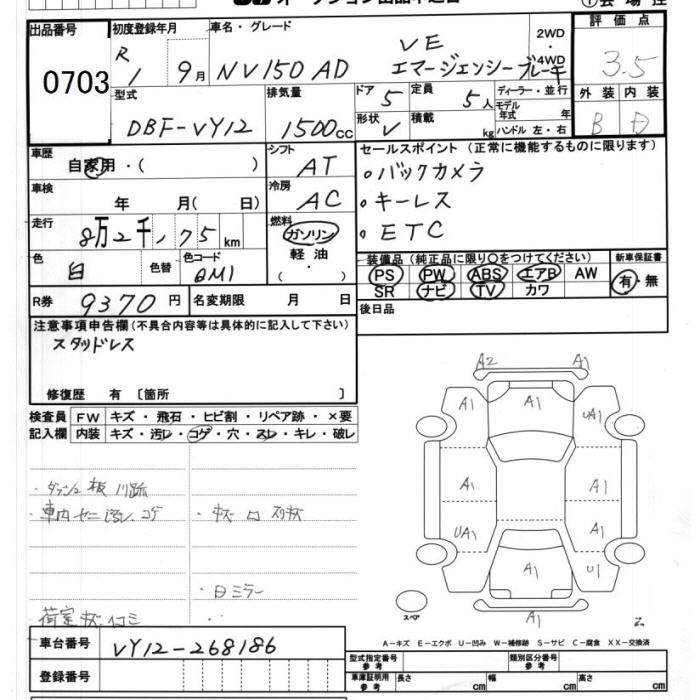 出品番号
0703
初度登録年月
R 1 9月
車名・グレード
NV150 AD VE エマージェンシーブレーキ
2WD
4WD
評価点
3.5
外装 内装
B D
型式
DBF-VY12
排気量
1500cc
ドア 5
定員 5人
形状 V
積載 kg
ディーラー・並行
モデル年式 年
ハンドル 左・右
車歴
自家用・( )
シフト
AT
セールスポイント (正常に機能するものに限ります)
。バックカメラ
。キーレス
。ETC
車検
年 月( 日)
冷房
AC
走行
8万2千,175km
燃料
ガソリン
軽油
( )
色
白
色替
色コード
QM1
装備品(純正品に限り〇をつけてください)
PS PW ABS エアB AW
SR ナビ TV カワ
新車保証書
有・無
R券 9370円
名変期限 月 日
後日品
注意事項申告欄(不具合内容等は具体的に記入して下さい)
スタッドレス
修復歴 有 〔箇所 〕
検査員記入欄
FW キズ・飛石・ヒビ割・リペア跡・×要
内装 キズ・汚レ・コゲ・穴・スレ・キレ・破レ
・車内ヤニ 汚レ、コゲ
A2 A1
A1 A1 UA1
A1 A1
UA1 A1
A1 U1
A1
スペア
A-キズ E-エクボ U-凹み W-補修跡 S-サビ C-腐食 XX-交換済
車台番号
VY12-268186
登録番号
型式指定番号 参考
類別区分番号 参考
車庫証明用 参考
長さ cm 幅 cm 高さ cm